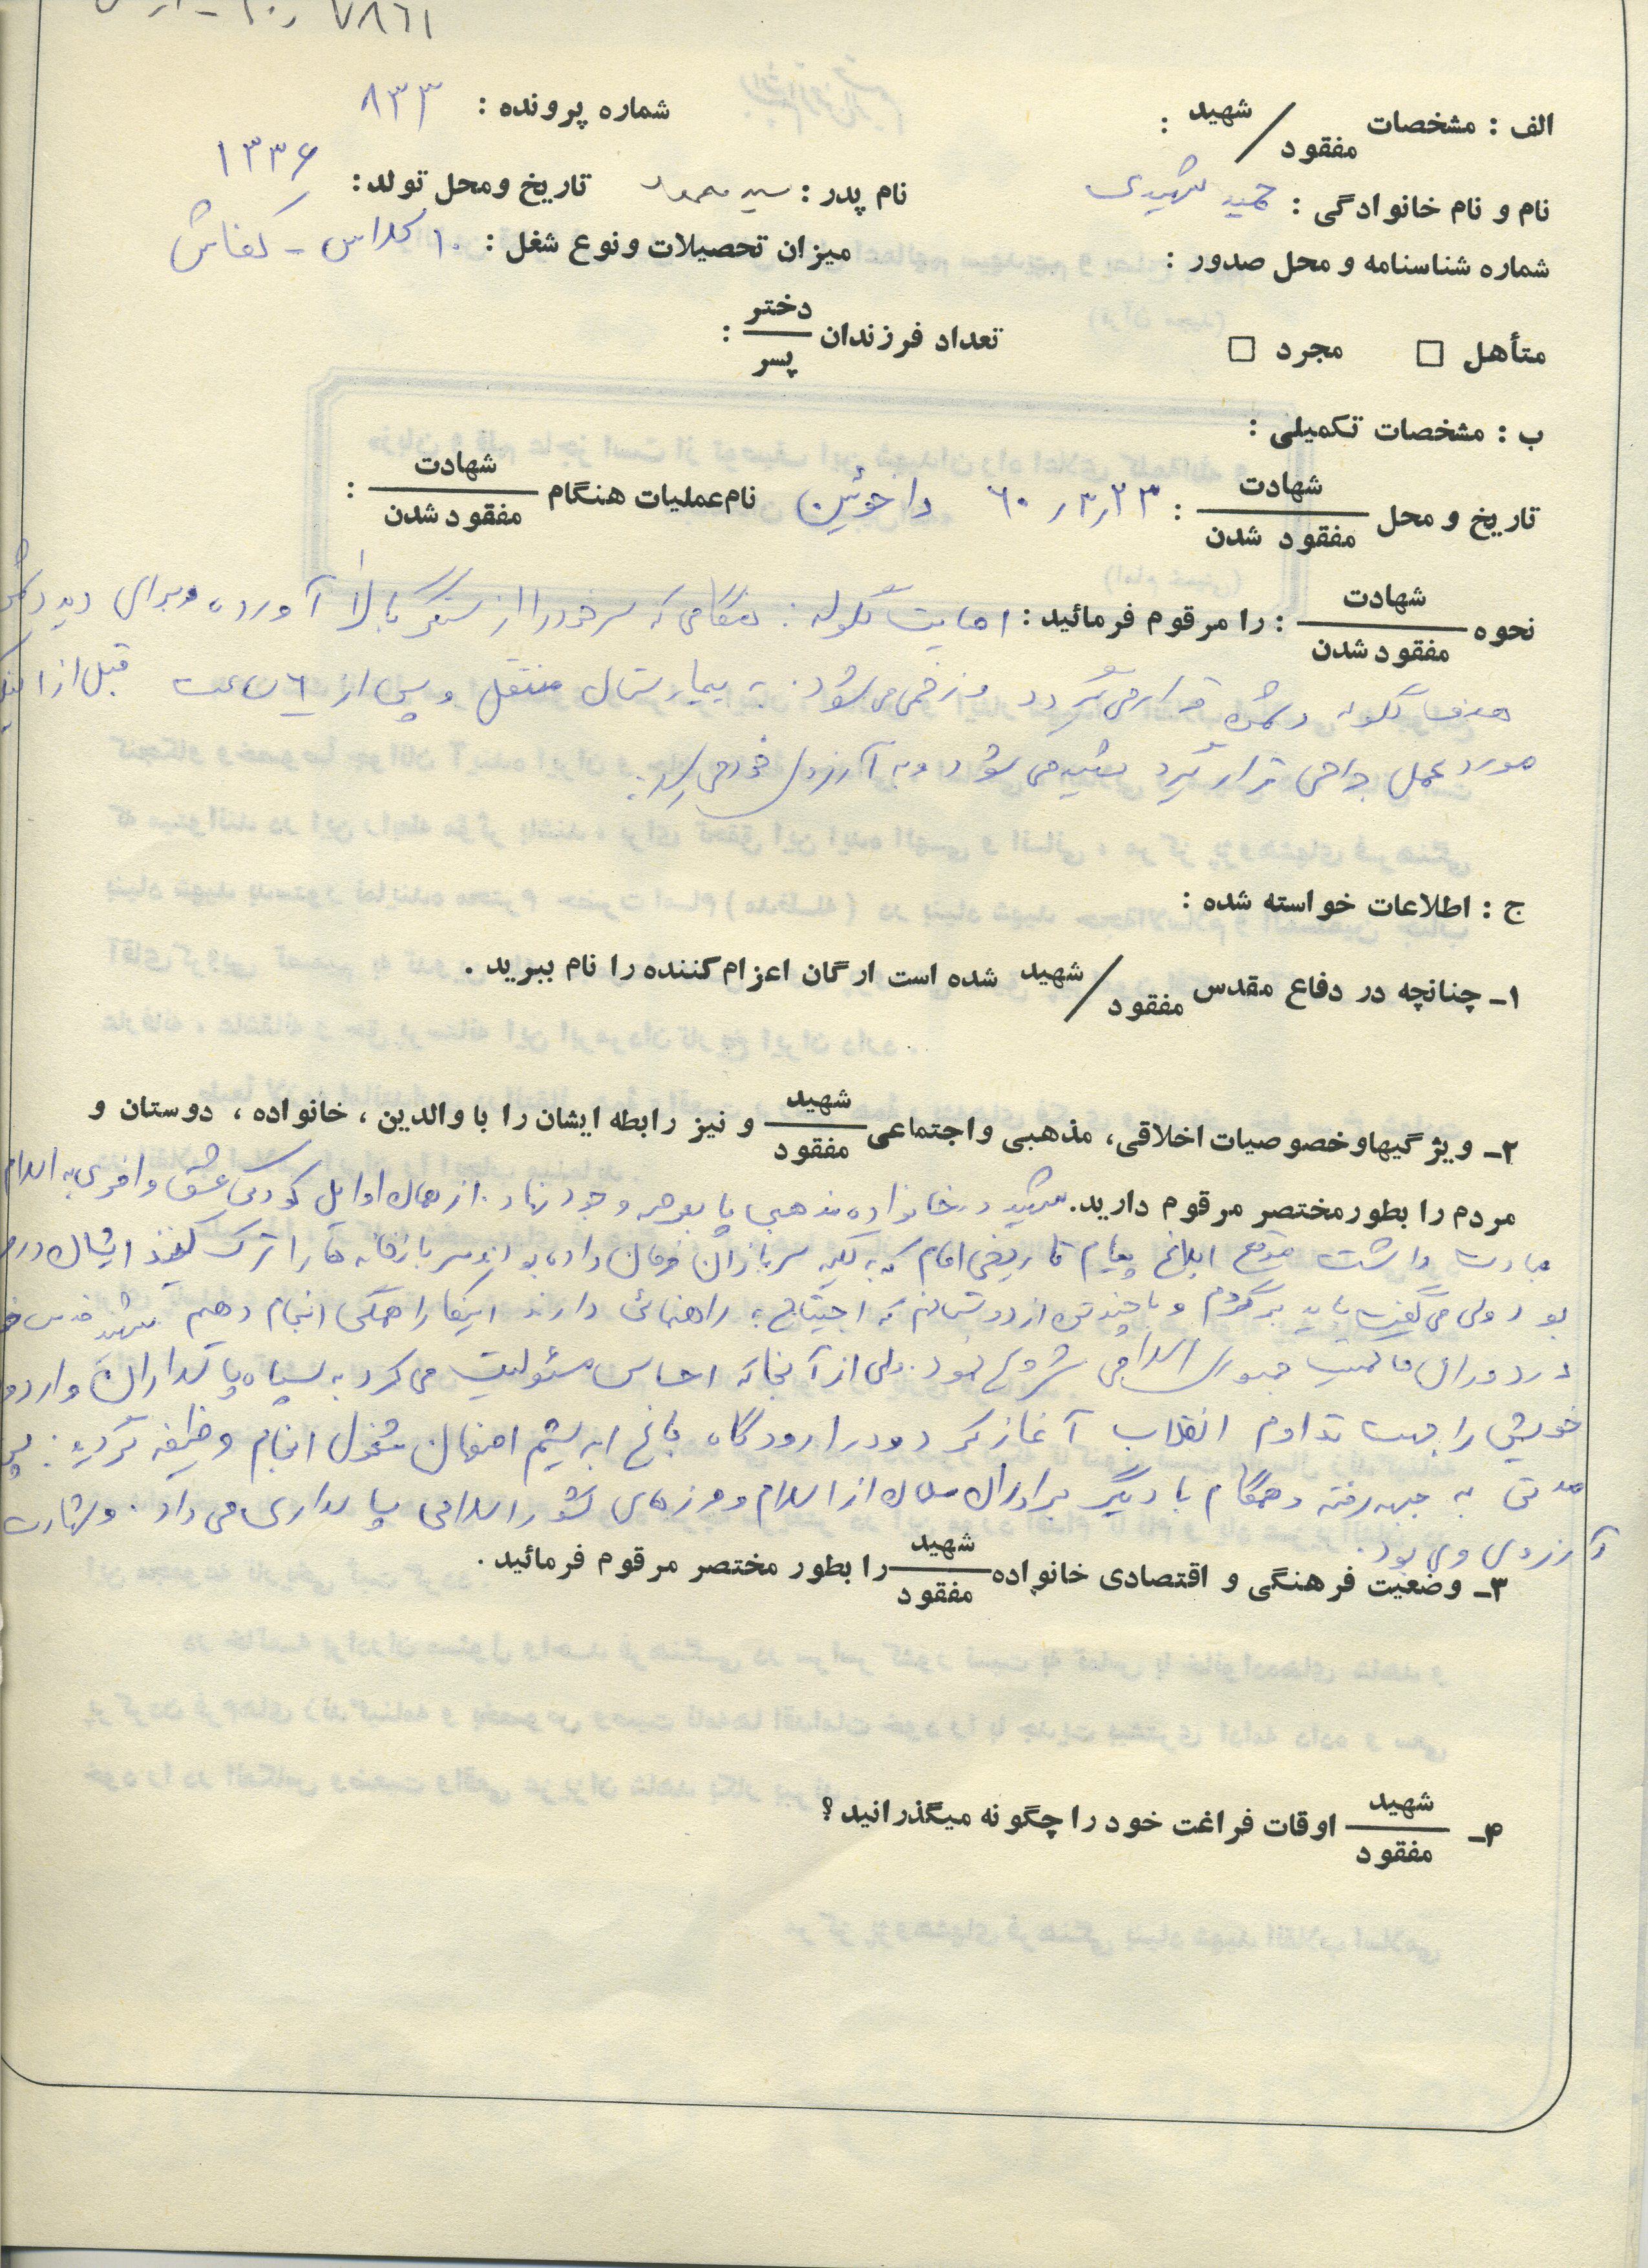 ۷۸۶۱
الف : مشخصات شهید / مفقود :
شماره پرونده : ۸۳۳
نام و نام خانوادگی : حمید شهیدی
نام پدر : سید محمود
تاریخ ومحل تولد : ۱۳۳۶
شماره شناسنامه و محل صدور :
میزان تحصیلات ونوع شغل : ۱۰ کلاس - کفاش
متأهل □ مجرد □
تعداد فرزندان دختر / پسر :
ب : مشخصات تکمیلی :
تاریخ و محل شهادت / مفقود شدن : ۶۰ر۳ر۲۳ دارخوئین
نام عملیات هنگام شهادت / مفقود شدن :
نحوه شهادت / مفقود شدن : را مرقوم فرمائید : اصابت گلوله : هنگامی که سر خود را از سنگر بالا آورده و برای دید
هدف گلوله دشمن قرار می گیرد و زخمی می شود . به بیمارستان منتقل و پس از ۶ ساعت قبل از
مورد عمل جراحی قرار گیرد شهید می شود و به آرزوی خود می رسد .
ج : اطلاعات خواسته شده :
۱ـ چنانچه در دفاع مقدس شهید / مفقود شده است ارگان اعزام کننده را نام ببرید .
۲ـ ویژگیها و خصوصیات اخلاقی، مذهبی و اجتماعی شهید / مفقود و نیز رابطه ایشان را با والدین ، خانواده ، دوستان و
مردم را بطور مختصر مرقوم دارید. شهید در خانواده مذهبی پا بعرصه وجود نهاد . از همان اوایل کودکی عشق وافری به اسلام
داشت موقع ابلاغ پیام تاریخی امام که به کلیه سربازان فرمان داده بودند سربازخانه ها را ترک کنند ایشان در
بود ولی می گفت باید برگردم و با چند تن از دوستانم که احتیاج به راهنمائی دارند اینکار را همگی انجام دهیم شهید
در دوران حاکمیت جمهوری اسلامی شروع نمود . ولی از آنجا که احساس مسئولیت می کرد به سپاه پاسداران وارد و
خویش را جهت تداوم انقلاب آغاز کرد و در اردوگاه باغ ابریشم اصفهان مشغول انجام وظیفه گردید . پس
مدتی به جبهه رفته و همگام با دیگر برادران از اسلام و مرزهای کشور اسلامی پاسداری می داد . و شهادت
آرزوی وی بود .
۳ـ وضعیت فرهنگی و اقتصادی خانواده شهید / مفقود را بطور مختصر مرقوم فرمائید .
۴ـ شهید / مفقود اوقات فراغت خود را چگونه میگذرانید ؟